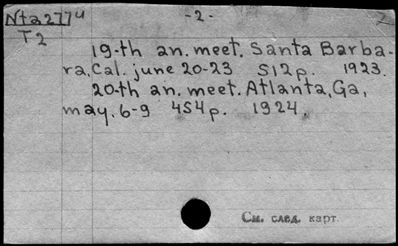 Nta277u -2-
T2
19-th an. meet. Santa Barba-
ra, Cal. june 20-23 512p. 1923.
20-th an. meet. Atlanta, Ga,
may. 6-9 454p. 1924.
См. след. карт.